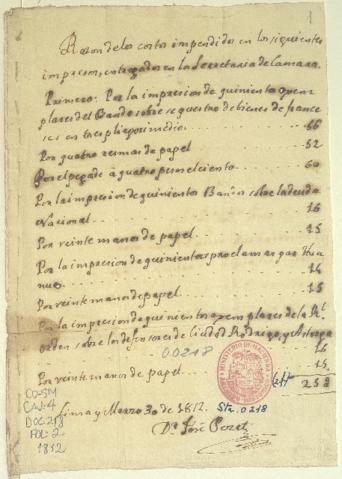 1
Rason delos costos impendidos en los siguientes
impresos, entregados en la Secretaria de Camara.
Primero: Por la impresion de quinientos exem
plares del Bando sobre sequestro de bienes de france
ses en tres pliegos medio
66
Por quatro resmas de papel
52
Por el pegado á quatro pesos el ciento
60
Por la impresion de quinientos Bandos sobre la deuda
Nacional
16
Por veinte manos de papel
15
Por la impresion de quinientas proclamas para Hua
nuco
14
Por veinte manos de papel
15
Por la impresion de quinientos exemplares de la Rl.
orden sobre los defensores de Ciudad Rodrigo, y Astorga
16
00218
Por veinte manos de papel
15
253
Lima y Marzo 30 de 1812.
Sta. 0218
Dr. José Perez
CO-SM
CAJ: 4
DOC: 218
FOL: 2
1812